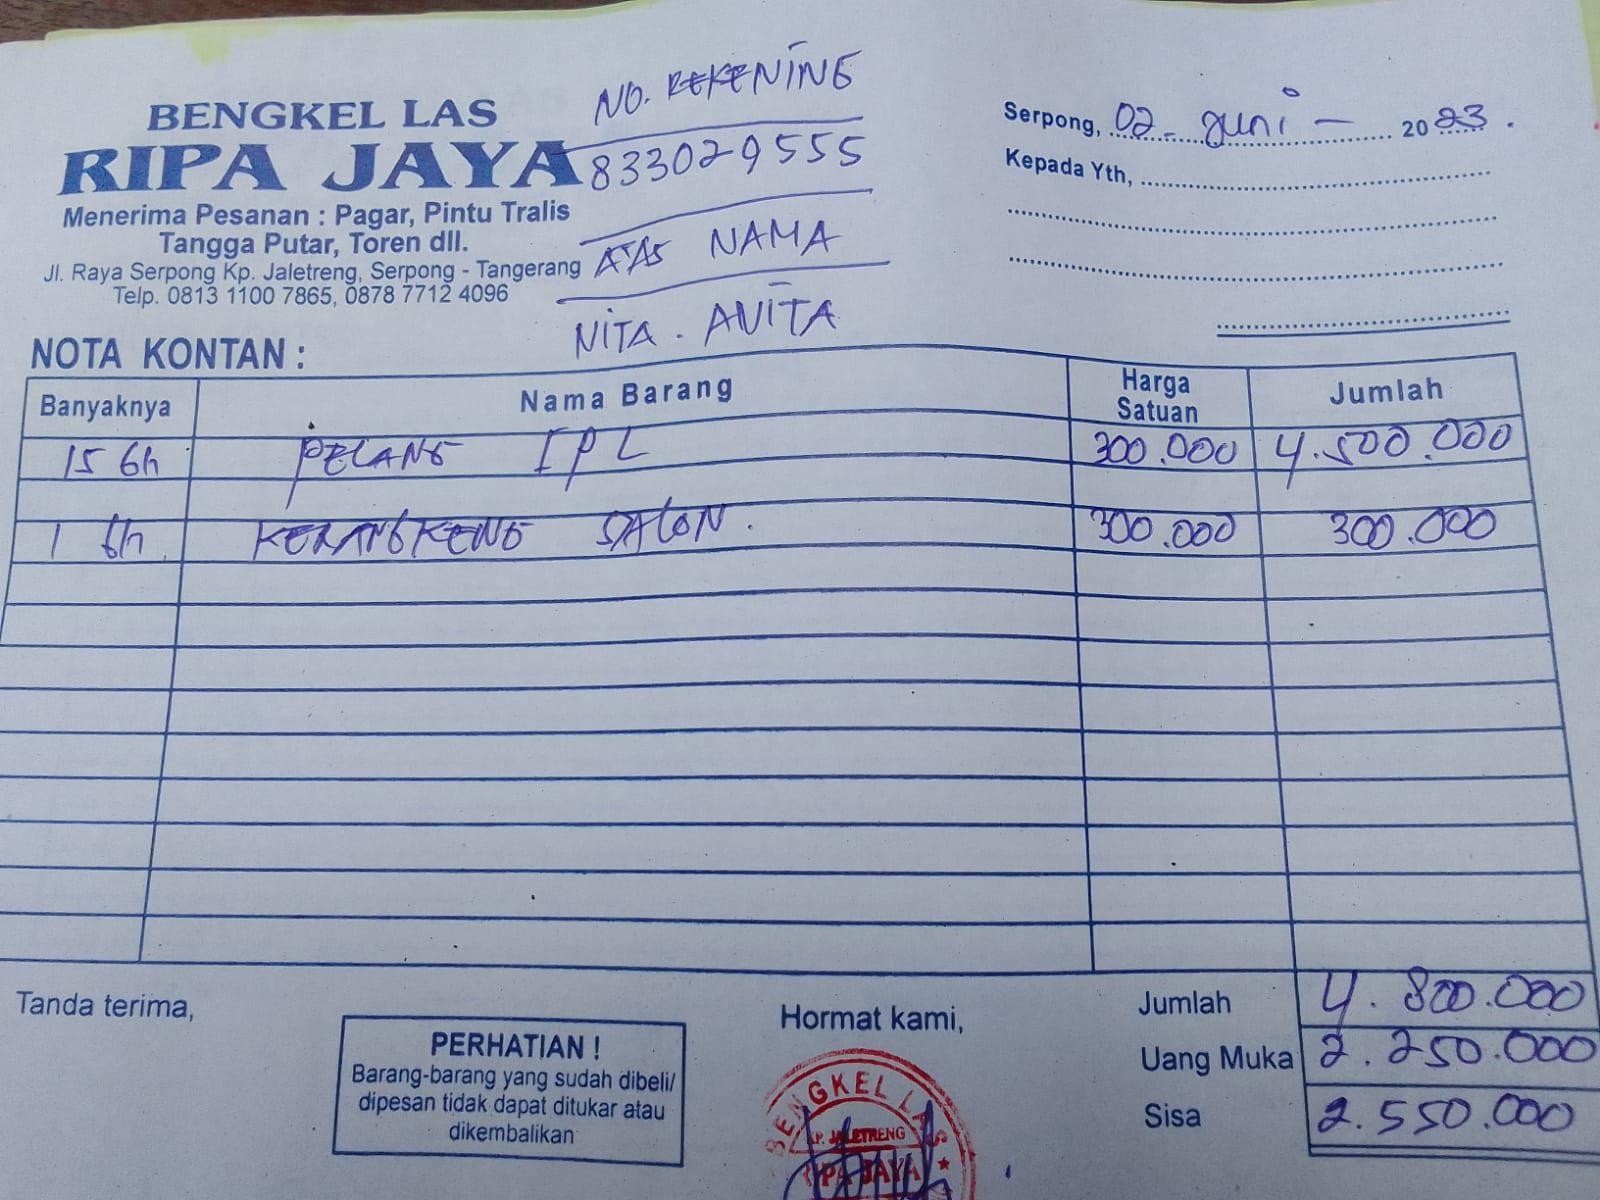 BENGKEL LAS
RIPA JAYA
Menerima Pesanan : Pagar, Pintu Tralis
Tangga Putar, Toren dll.
Jl. Raya Serpong Kp. Jaletreng, Serpong - Tangerang
Telp. 0813 1100 7865, 0878 7712 4096
NO. REKENING
833029555
ATAS NAMA
NITA. ANITA
Serpong, 02 - Juni - 2023.
Kepada Yth,
NOTA KONTAN :
Banyaknya Nama Barang Harga Satuan Jumlah
15 bh PELANG IPL 300.000 4.500.000
1 bh KERANGKENG SALON. 300.000 300.000
Tanda terima,
PERHATIAN !
Barang-barang yang sudah dibeli/
dipesan tidak dapat ditukar atau
dikembalikan
Hormat kami,
BENGKEL LAS
KP. JALETRENG
RIPA JAYA
Jumlah 4.800.000
Uang Muka 2.250.000
Sisa 2.550.000